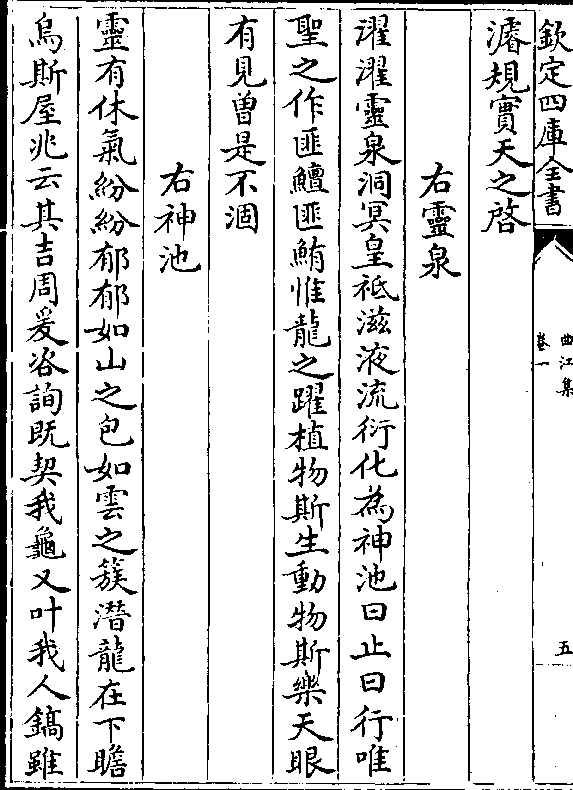 欽定四庫全書
曲江集
卷一
五
濬規實天之啓
右靈泉
濯濯靈泉洞冥皇祗滋液流衍化為神池曰止曰行唯
聖之作匪鱣匪鮪惟龍之躍植物斯生動物斯樂天眼
有見曾是不涸
右神池
靈有休氣紛紛郁郁如山之包如雲之簇潛龍在下瞻
烏斯屋兆云其吉周爰咨詢既契我龜又叶我人鎬雖